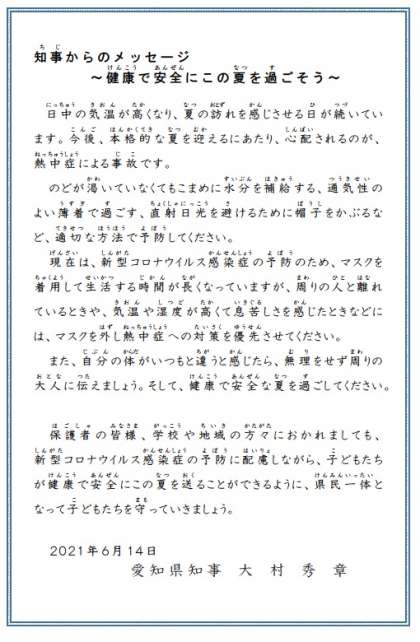 知事からのメッセージ
～健康で安全にこの夏を過ごそう～
日中の気温が高くなり、夏の訪れを感じさせる日が続いてい
ます。今後、本格的な夏を迎えるにあたり、心配されるのが、
熱中症による事故です。
のどが渇いていなくてもこまめに水分を補給する、通気性の
よい薄着で過ごす、直射日光を避けるために帽子をかぶるな
ど、適切な方法で予防してください。
現在は、新型コロナウイルス感染症の予防のため、マスクを
着用して生活する時間が長くなっていますが、周りの人と離れ
ているときや、気温や湿度が高くて息苦しさを感じたときなどに
は、マスクを外し熱中症への対策を優先させてください。
また、自分の体がいつもと違うと感じたら、無理をせず周りの
大人に伝えましょう。そして、健康で安全な夏を過ごしてください。
保護者の皆様、学校や地域の方々におかれましても、
新型コロナウイルス感染症の予防に配慮しながら、子どもたち
が健康で安全にこの夏を送ることができるように、県民一体と
なって子どもたちを守っていきましょう。
2021年6月14日
愛知県知事 大村秀章